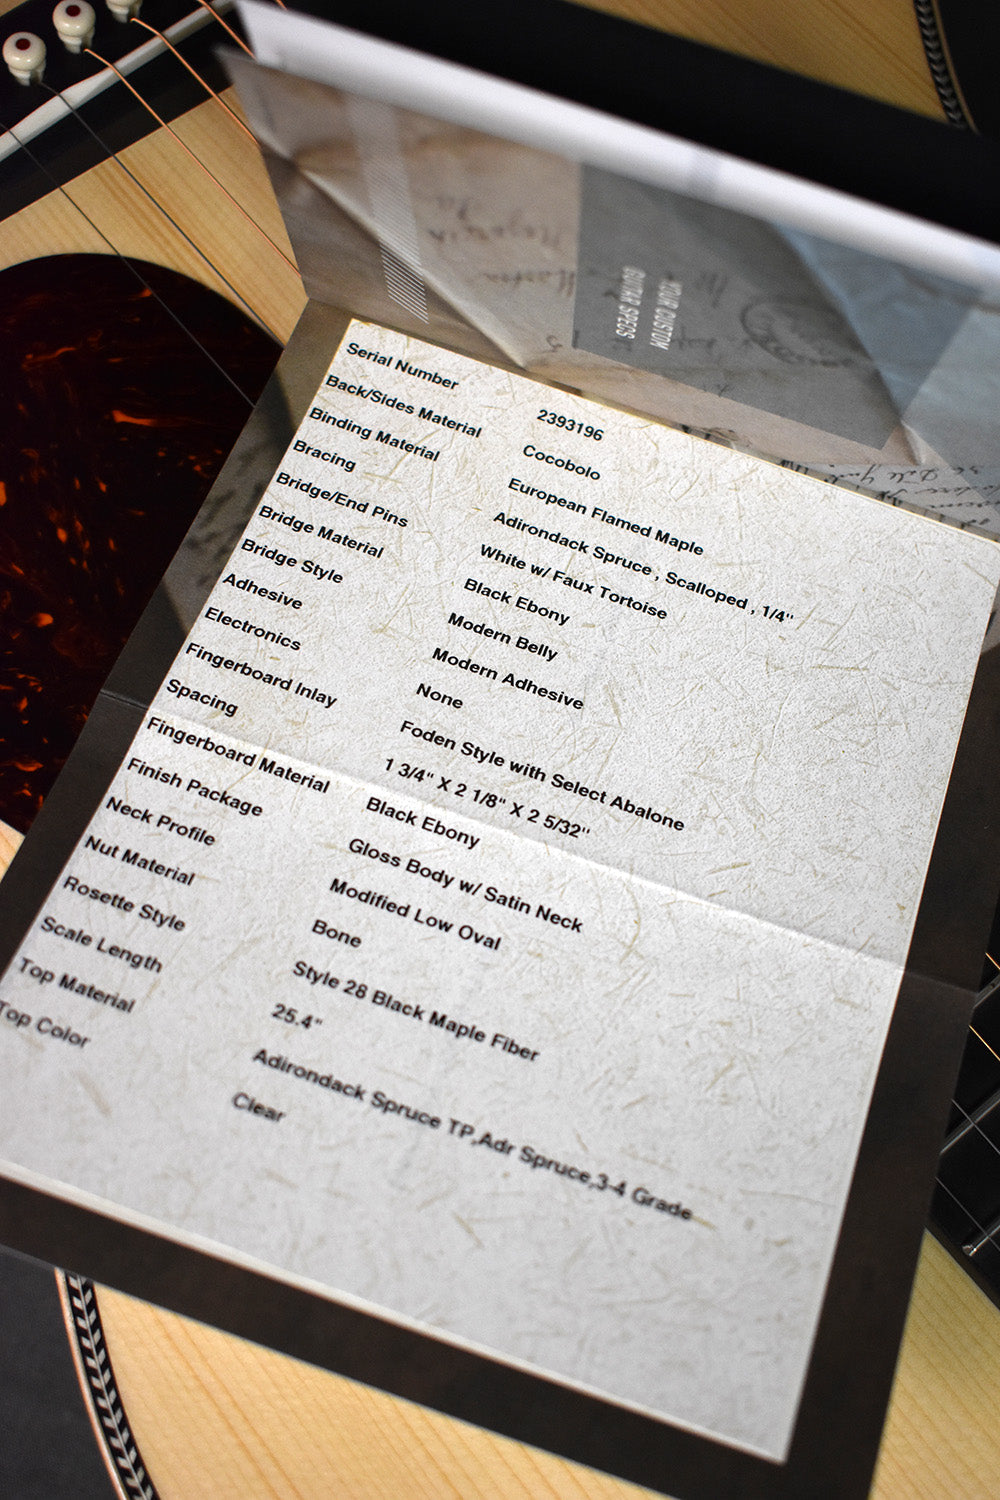 YOUR CUSTOM
GUITAR SPECS
Serial Number 2393196
Back/Sides Material Cocobolo
Binding Material European Flamed Maple
Bracing Adirondack Spruce , Scalloped , 1/4"
Bridge/End Pins White w/ Faux Tortoise
Bridge Material Black Ebony
Bridge Style Modern Belly
Adhesive Modern Adhesive
Electronics None
Fingerboard Inlay Foden Style with Select Abalone
Spacing 1 3/4" X 2 1/8" X 2 5/32"
Fingerboard Material Black Ebony
Finish Package Gloss Body w/ Satin Neck
Neck Profile Modified Low Oval
Nut Material Bone
Rosette Style Style 28 Black Maple Fiber
Scale Length 25.4"
Top Material Adirondack Spruce TP,Adr Spruce,3-4 Grade
Top Color Clear